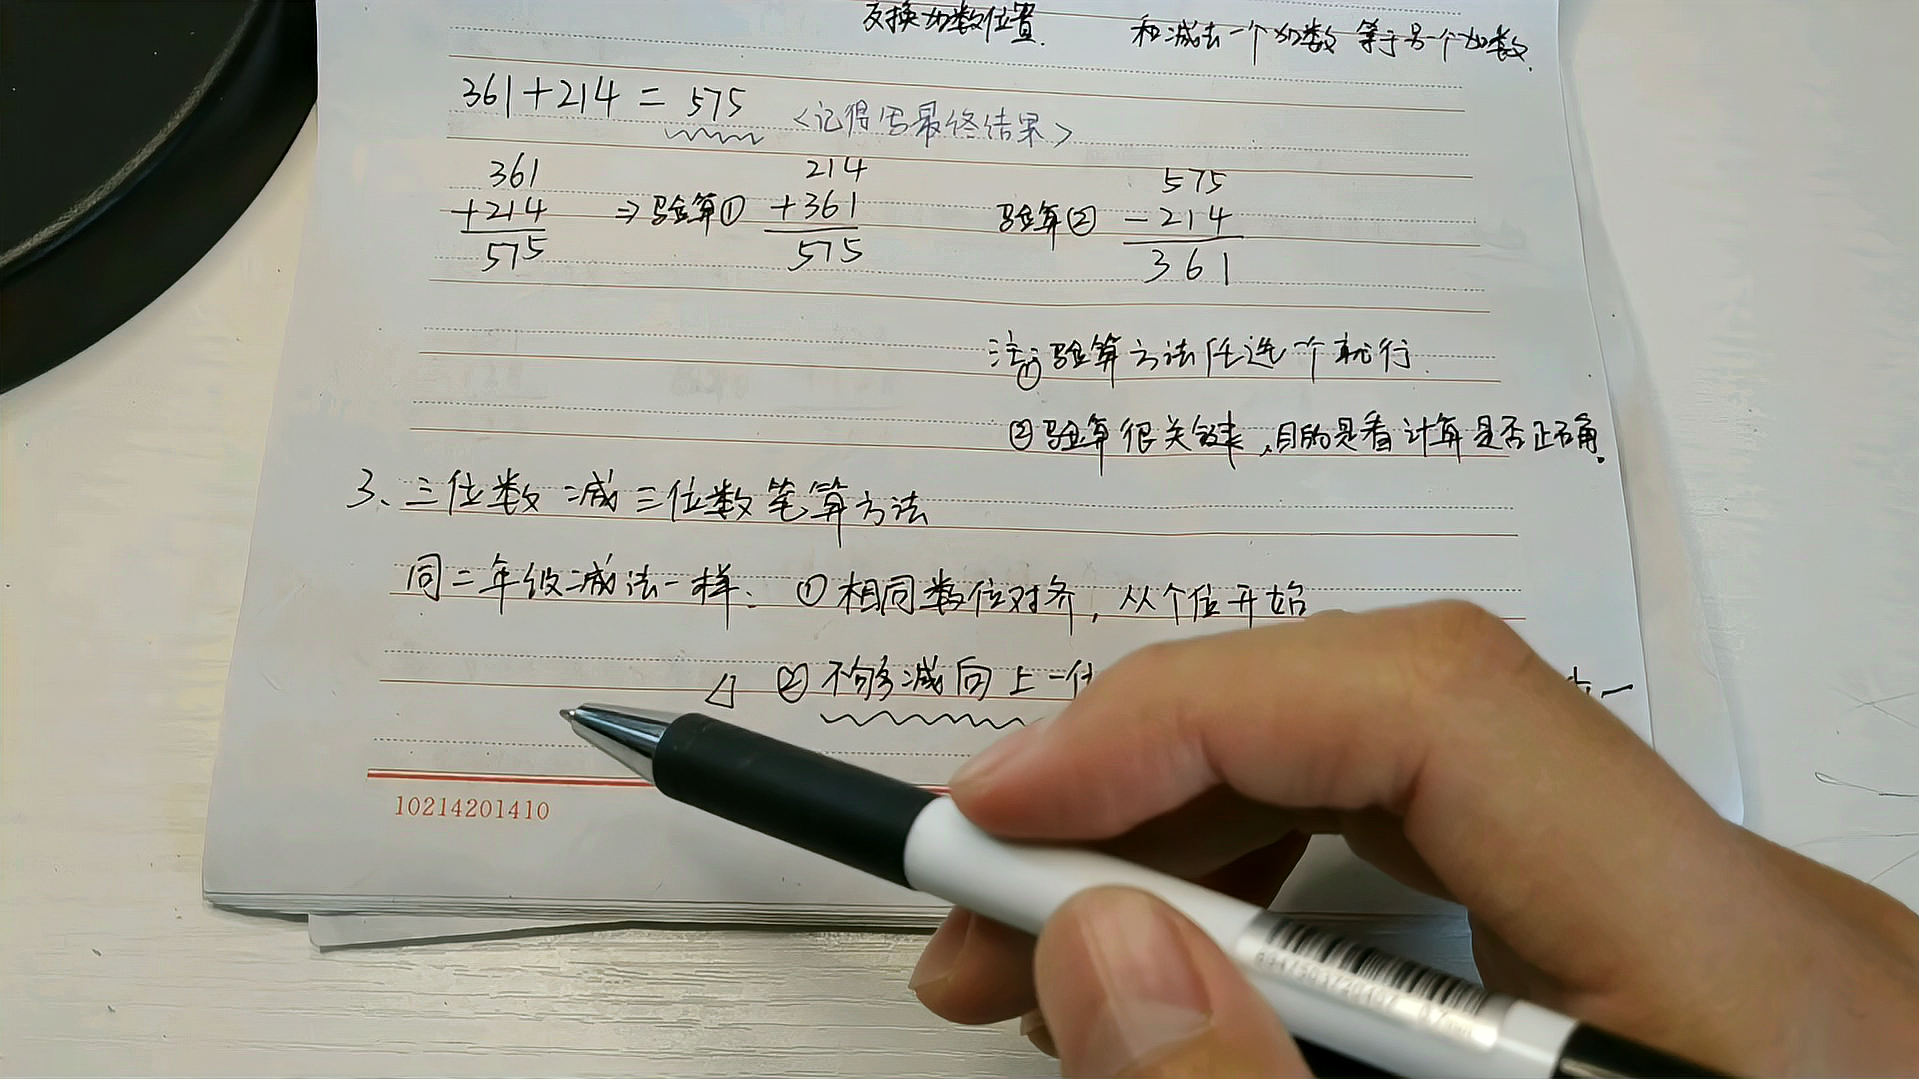 交换加数位置. 和减去一个加数等于另一个加数.
361+214=575 <记得写最终结果>
361 214 575
+214 ⇒验算① +361 验算② -214
575 575 361
注:①验算方法任选一个就行.
②验算很关键,目的是看计算是否正确.
3、三位数减三位数笔算方法
同二年级减法一样: ①相同数位对齐,从个位开始
△ ②不够减向上一位 一
10214201410